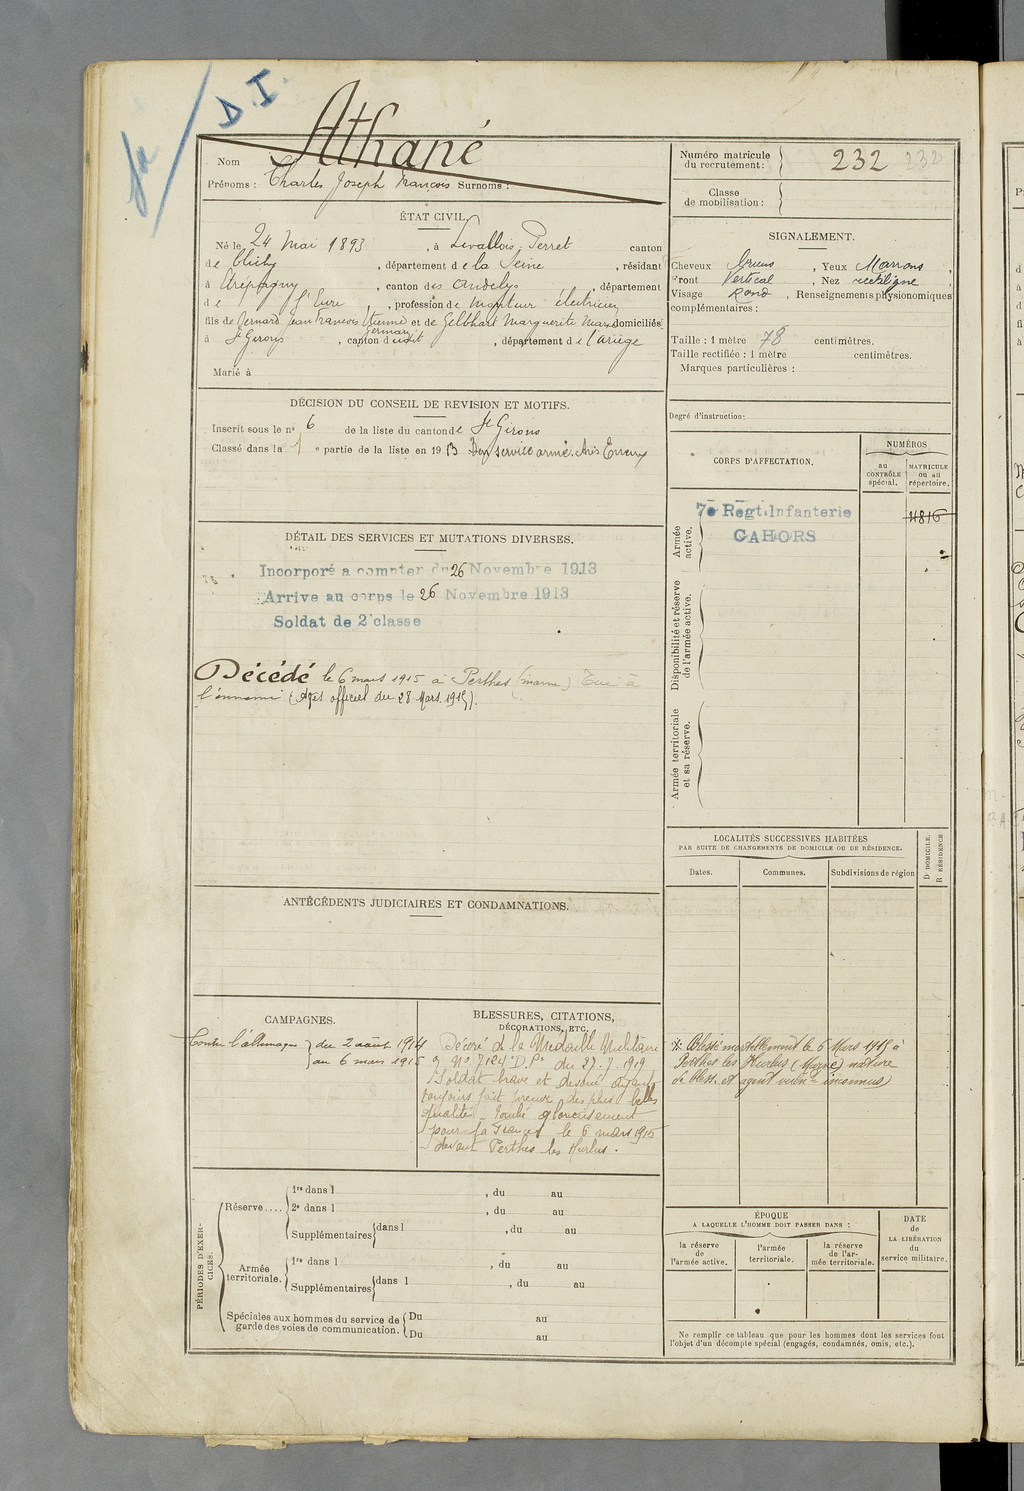 D.I.
Athané
Nom
Prénoms : Charles Joseph François Surnoms :
Numéro matricule du recrutement : 232 232
Classe de mobilisation :
ÉTAT CIVIL.
Né le 24 Mai 1893, à Levallois-Perret canton
de Clichy, département de la Seine, résidant
à Etrépagny, canton des Andelys, département
de l'Eure, profession de monteur électricien
fils de Bernard Jean François Etienne et de Gelbhart Marguerite domiciliés
à St Girons, canton dudit, département de l'ariège
Marié à
SIGNALEMENT.
Cheveux bruns, Yeux Marrons,
Front Vertical, Nez rectiligne,
Visage Rond, Renseignements physionomiques
complémentaires :
Taille : 1 mètre 78 centimètres.
Taille rectifiée : 1 mètre centimètres.
Marques particulières :
Degré d'instruction:
DÉCISION DU CONSEIL DE REVISION ET MOTIFS.
Inscrit sous le n° 6 de la liste du canton de St Girons
Classé dans la 1e partie de la liste en 1913 Bon service armé. Avis Evreux
DÉTAIL DES SERVICES ET MUTATIONS DIVERSES.
Incorporé a compter du 26 Novembre 1913
Arrive au corps le 26 Novembre 1913
Soldat de 2e classe
Décédé le 6 mars 1915 à Perthes (marne) Tué à
l'ennemi (Avis officiel du 28 Mars 1915).
CORPS D'AFFECTATION.
NUMÉROS
au CONTRÔLE spécial.
MATRICULE ou au répertoire.
Armée active.
7e Regt. Infanterie
CAHORS
4816
Disponibilité et réserve de l'armée active.
Armée territoriale et sa réserve.
LOCALITÉS SUCCESSIVES HABITÉES
PAR SUITE DE CHANGEMENTS DE DOMICILE OU DE RÉSIDENCE.
Dates.
Communes.
Subdivisions de région
D DOMICILE.
R RÉSIDENCE
ANTÉCÉDENTS JUDICIAIRES ET CONDAMNATIONS.
CAMPAGNES.
Contre l'allemagne } du 2 août 1914
au 6 mars 1915
BLESSURES, CITATIONS,
DÉCORATIONS, ETC.
Décoré de la Médaille Militaire
No 7124 "D.P" du 27.7.1919
Soldat brave et dévoué ayant
toujours fait preuve des plus belles
qualités. Tombé glorieusement
pour la France le 6 mars 1915
devant Perthes les Hurlus.
* Blessé mortellement le 6 Mars 1915 à
Perthes les Hurlus (Marne) nature
de bless. et agent vuln. inconnus)
PÉRIODES D'EXERCICES.
Réserve....
1re dans l , du au
2e dans l , du au
Supplémentaires dans l , du au
Armée territoriale.
1re dans l , du au
Supplémentaires dans l , du au
Spéciales aux hommes du service de
garde des voies de communication.
Du au
Du au
ÉPOQUE
A LAQUELLE L'HOMME DOIT PASSER DANS :
la réserve de l'armée active.
l'armée territoriale.
la réserve de l'armée territoriale.
DATE
de
LA LIBÉRATION
du
service militaire.
Ne remplir ce tableau que pour les hommes dont les services font
l'objet d'un décompte spécial (engagés, condamnés, omis, etc.).